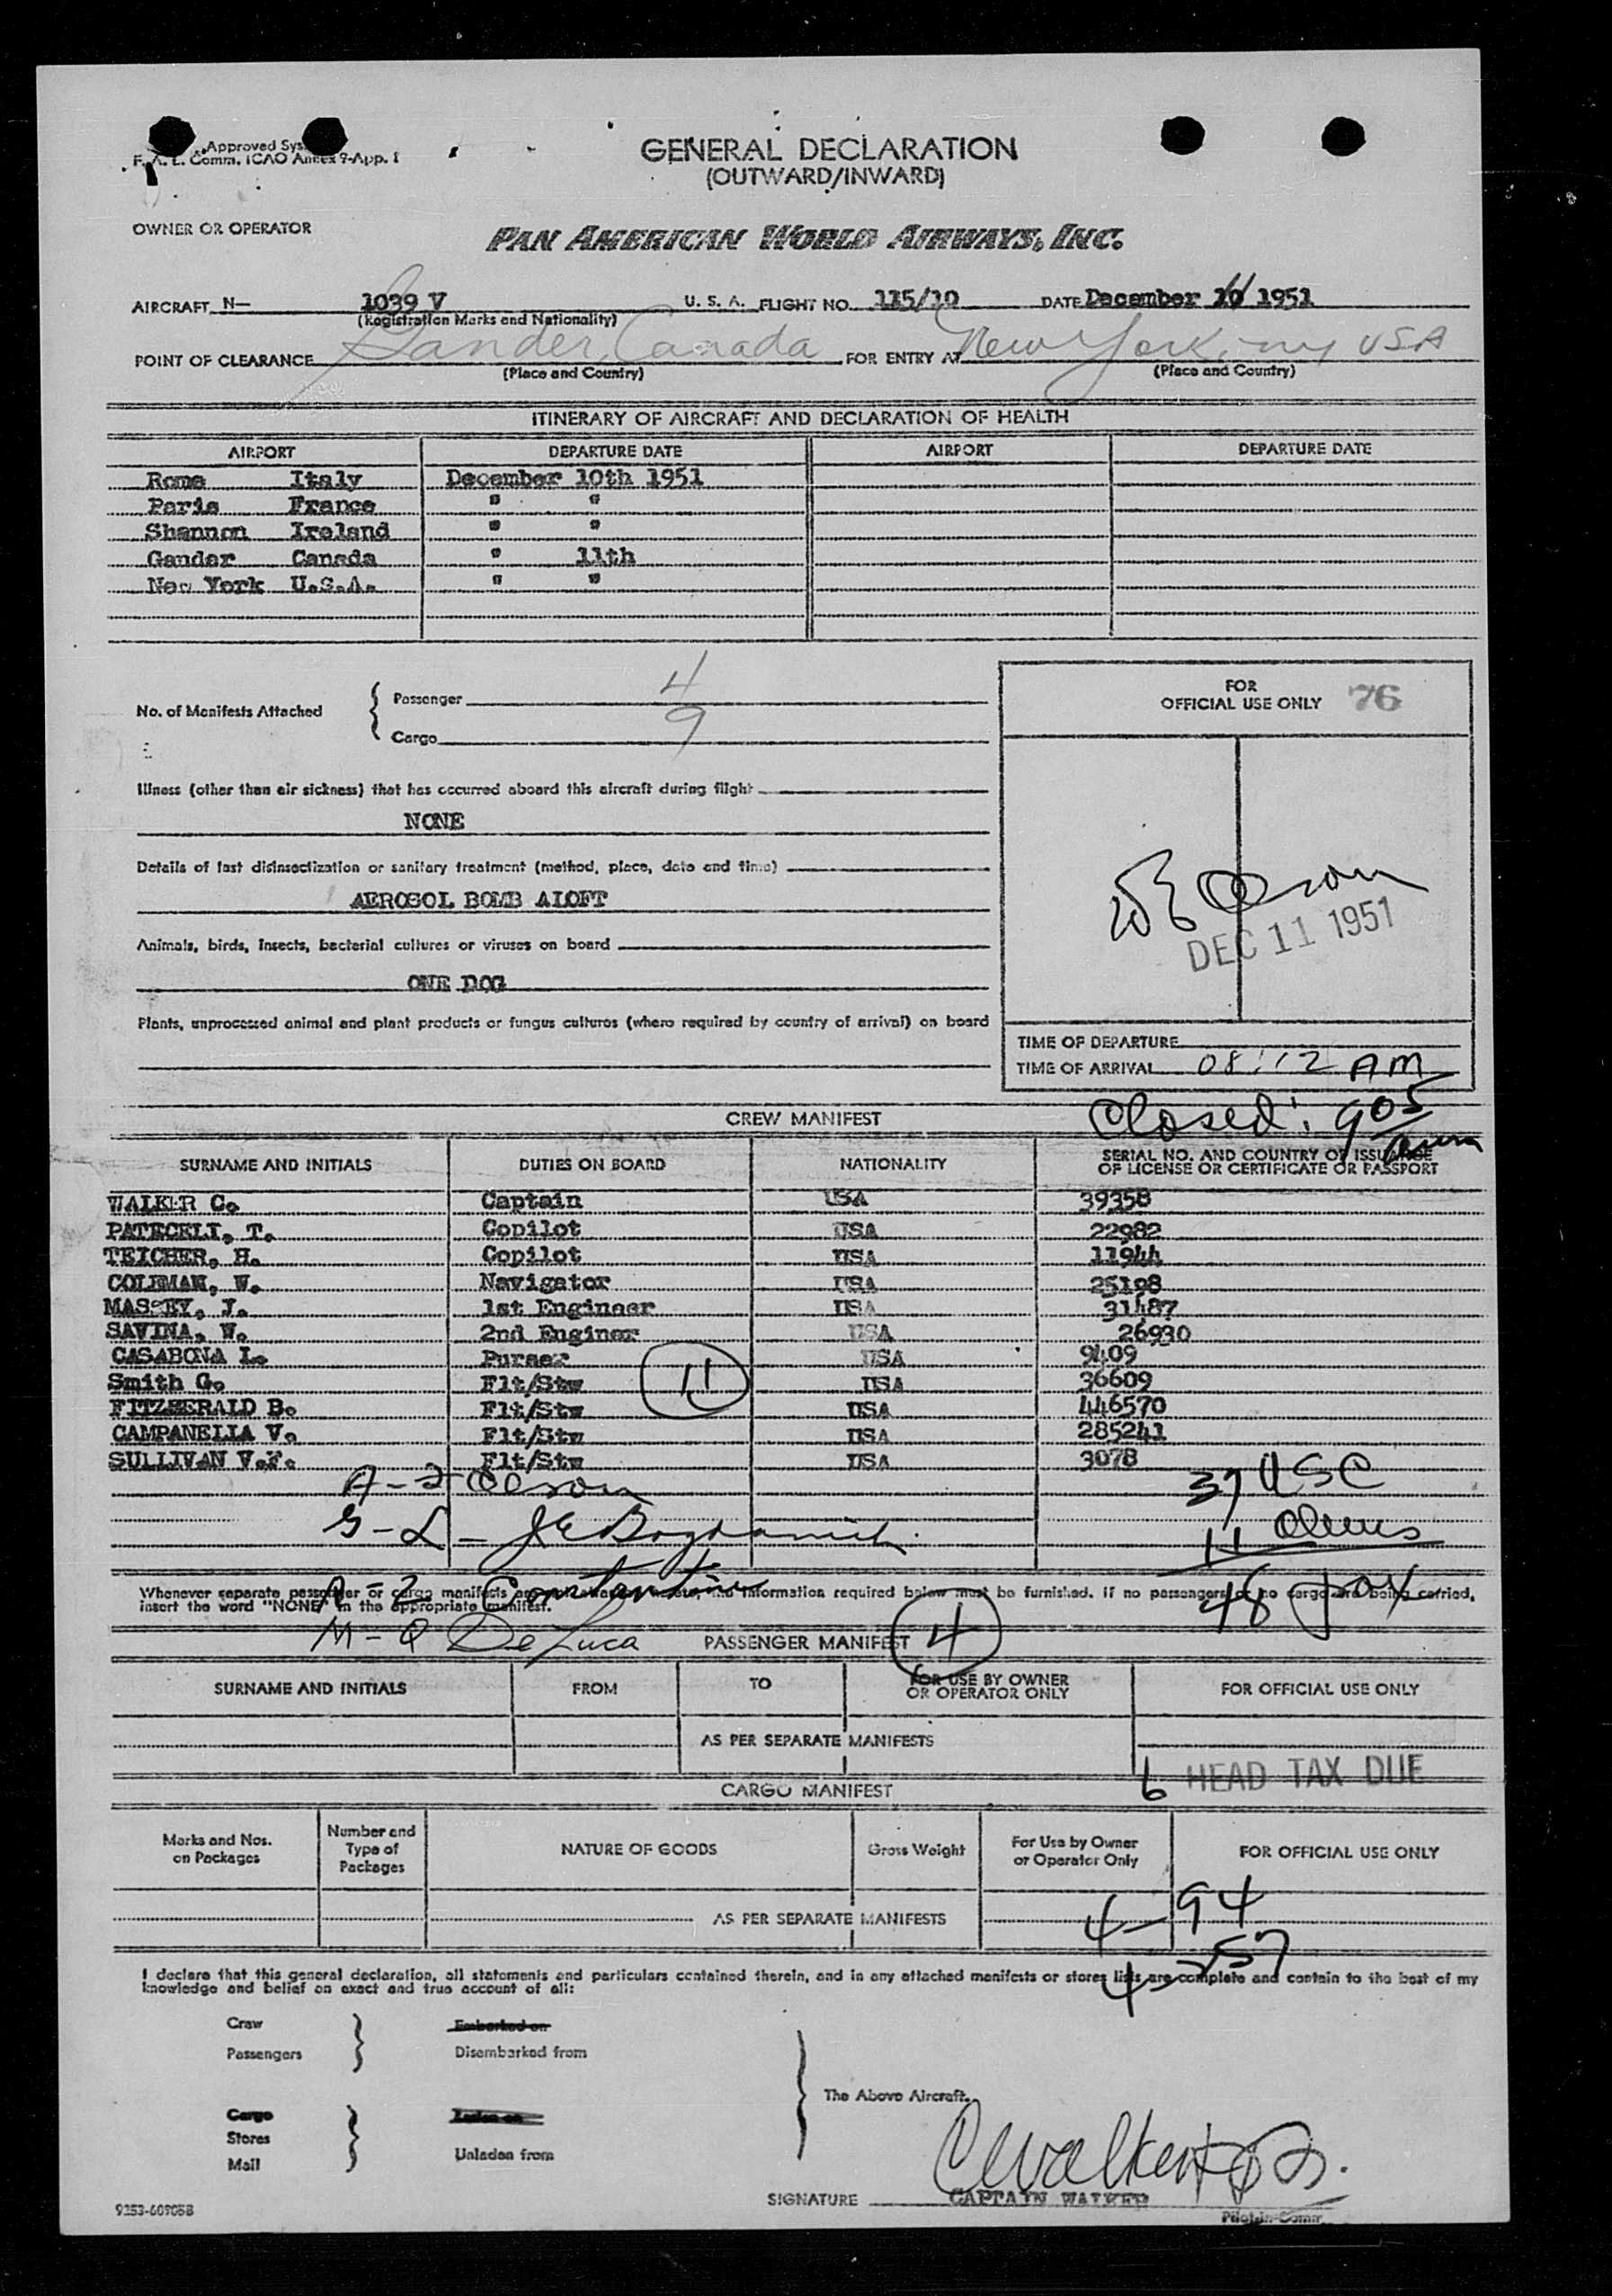 Approved Sys
F. A. L. Comm. ICAO Annex 9-App. 1
GENERAL DECLARATION
(OUTWARD/INWARD)
OWNER OR OPERATOR
PAN AMERICAN WORLD AIRWAYS, INC.
AIRCRAFT N— 1039 V U. S. A. FLIGHT NO. 115/10 DATE December 11 1951
(Registration Marks and Nationality)
POINT OF CLEARANCE Gander, Canada FOR ENTRY AT New York, ny USA
(Place and Country) (Place and Country)
ITINERARY OF AIRCRAFT AND DECLARATION OF HEALTH
AIRPORT DEPARTURE DATE AIRPORT DEPARTURE DATE
Rome Italy December 10th 1951
Paris France " "
Shannon Ireland " "
Gander Canada " 11th
New York U.S.A. " "
No. of Manifests Attached { Passenger 4
Cargo 9
FOR
OFFICIAL USE ONLY 76
Illness (other than air sickness) that has occurred aboard this aircraft during flight
NONE
Details of last disinsectization or sanitary treatment (method, place, date and time)
AEROSOL BOMB ALOFT
Animals, birds, insects, bacterial cultures or viruses on board
ONE DOG
Plants, unprocessed animal and plant products or fungus cultures (where required by country of arrival) on board
Olson
DEC 11 1951
TIME OF DEPARTURE
TIME OF ARRIVAL 08:12 AM
Closed: 905
CREW MANIFEST
SURNAME AND INITIALS DUTIES ON BOARD NATIONALITY SERIAL NO. AND COUNTRY OF ISSUANCE
OF LICENSE OR CERTIFICATE OR PASSPORT
WALKER C. Captain USA 39358
PATECELI, T. Copilot USA 22982
TEICHER, H. Copilot USA 11944
COLEMAN, W. Navigator USA 25198
MASSEY, J. 1st Engineer USA 31487
SAVINA, W. 2nd Enginer USA 26930
CASABONA L. Purser USA 9409
Smith G. Flt/Stw 11 USA 36609
FITZGERALD B. Flt/Stw USA 446570
CAMPANELLA V. Flt/Stw USA 285241
SULLIVAN V.F. Flt/Stw USA 3078
A-F Olson 37 USC
G-L - JE Bogdanich 11 Aliens
Whenever separate passenger or cargo manifests are not attached hereto, the information required below must be furnished. If no passengers or no cargo are being carried,
insert the word "NONE" in the appropriate manifest.
A-2 Constantine 48
M-Q De Luca PASSENGER MANIFEST 4
SURNAME AND INITIALS FROM TO FOR USE BY OWNER
OR OPERATOR ONLY FOR OFFICIAL USE ONLY
AS PER SEPARATE MANIFESTS
6 HEAD TAX DUE
CARGO MANIFEST
Marks and Nos.
on Packages Number and
Type of
Packages NATURE OF GOODS Gross Weight For Use by Owner
or Operator Only FOR OFFICIAL USE ONLY
AS PER SEPARATE MANIFESTS
4-94
4-257
I declare that this general declaration, all statements and particulars contained therein, and in any attached manifests or stores lists are complete and contain to the best of my
knowledge and belief an exact and true account of all:
Crew Embarked on
Passengers Disembarked from
The Above Aircraft.
Cargo Laden on
Stores
Mail Unladen from
C Walker
SIGNATURE CAPTAIN WALKER
Pilot-in-Comm.
9253-60905B